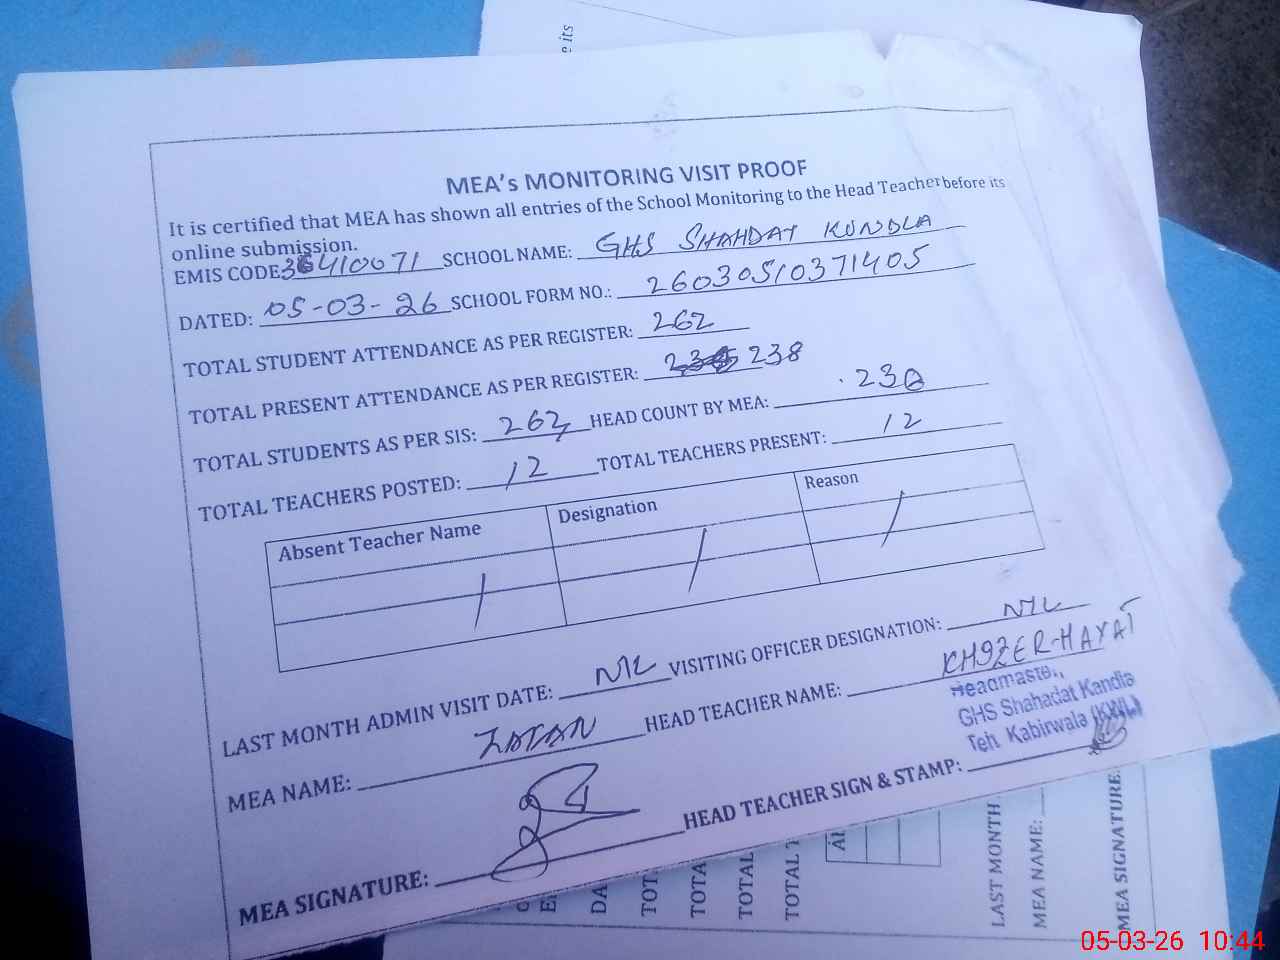 e its
MEA's MONITORING VISIT PROOF
It is certified that MEA has shown all entries of the School Monitoring to the Head Teacher before its
online submission.
EMIS CODE 36410071 SCHOOL NAME: GHS SHAHDAT KUNDLA
DATED: 05-03-26 SCHOOL FORM NO.: 26030510371405
TOTAL STUDENT ATTENDANCE AS PER REGISTER: 262
TOTAL PRESENT ATTENDANCE AS PER REGISTER: 238
TOTAL STUDENTS AS PER SIS: 262 HEAD COUNT BY MEA: 238
TOTAL TEACHERS POSTED: 12 TOTAL TEACHERS PRESENT: 12
Absent Teacher Name Designation Reason
LAST MONTH ADMIN VISIT DATE: NIL VISITING OFFICER DESIGNATION: NIL
MEA NAME: HEAD TEACHER NAME: KHIZER-HAYAT
Headmaster,
GHS Shahadat Kandla
Teh. Kabirwala (KWL)
MEA SIGNATURE: HEAD TEACHER SIGN & STAMP:
DA
TOT
TOTA
TOTAL
TOTAL T
LAST MONTH
MEA NAME:
MEA SIGNATURE:
05-03-26 10:44